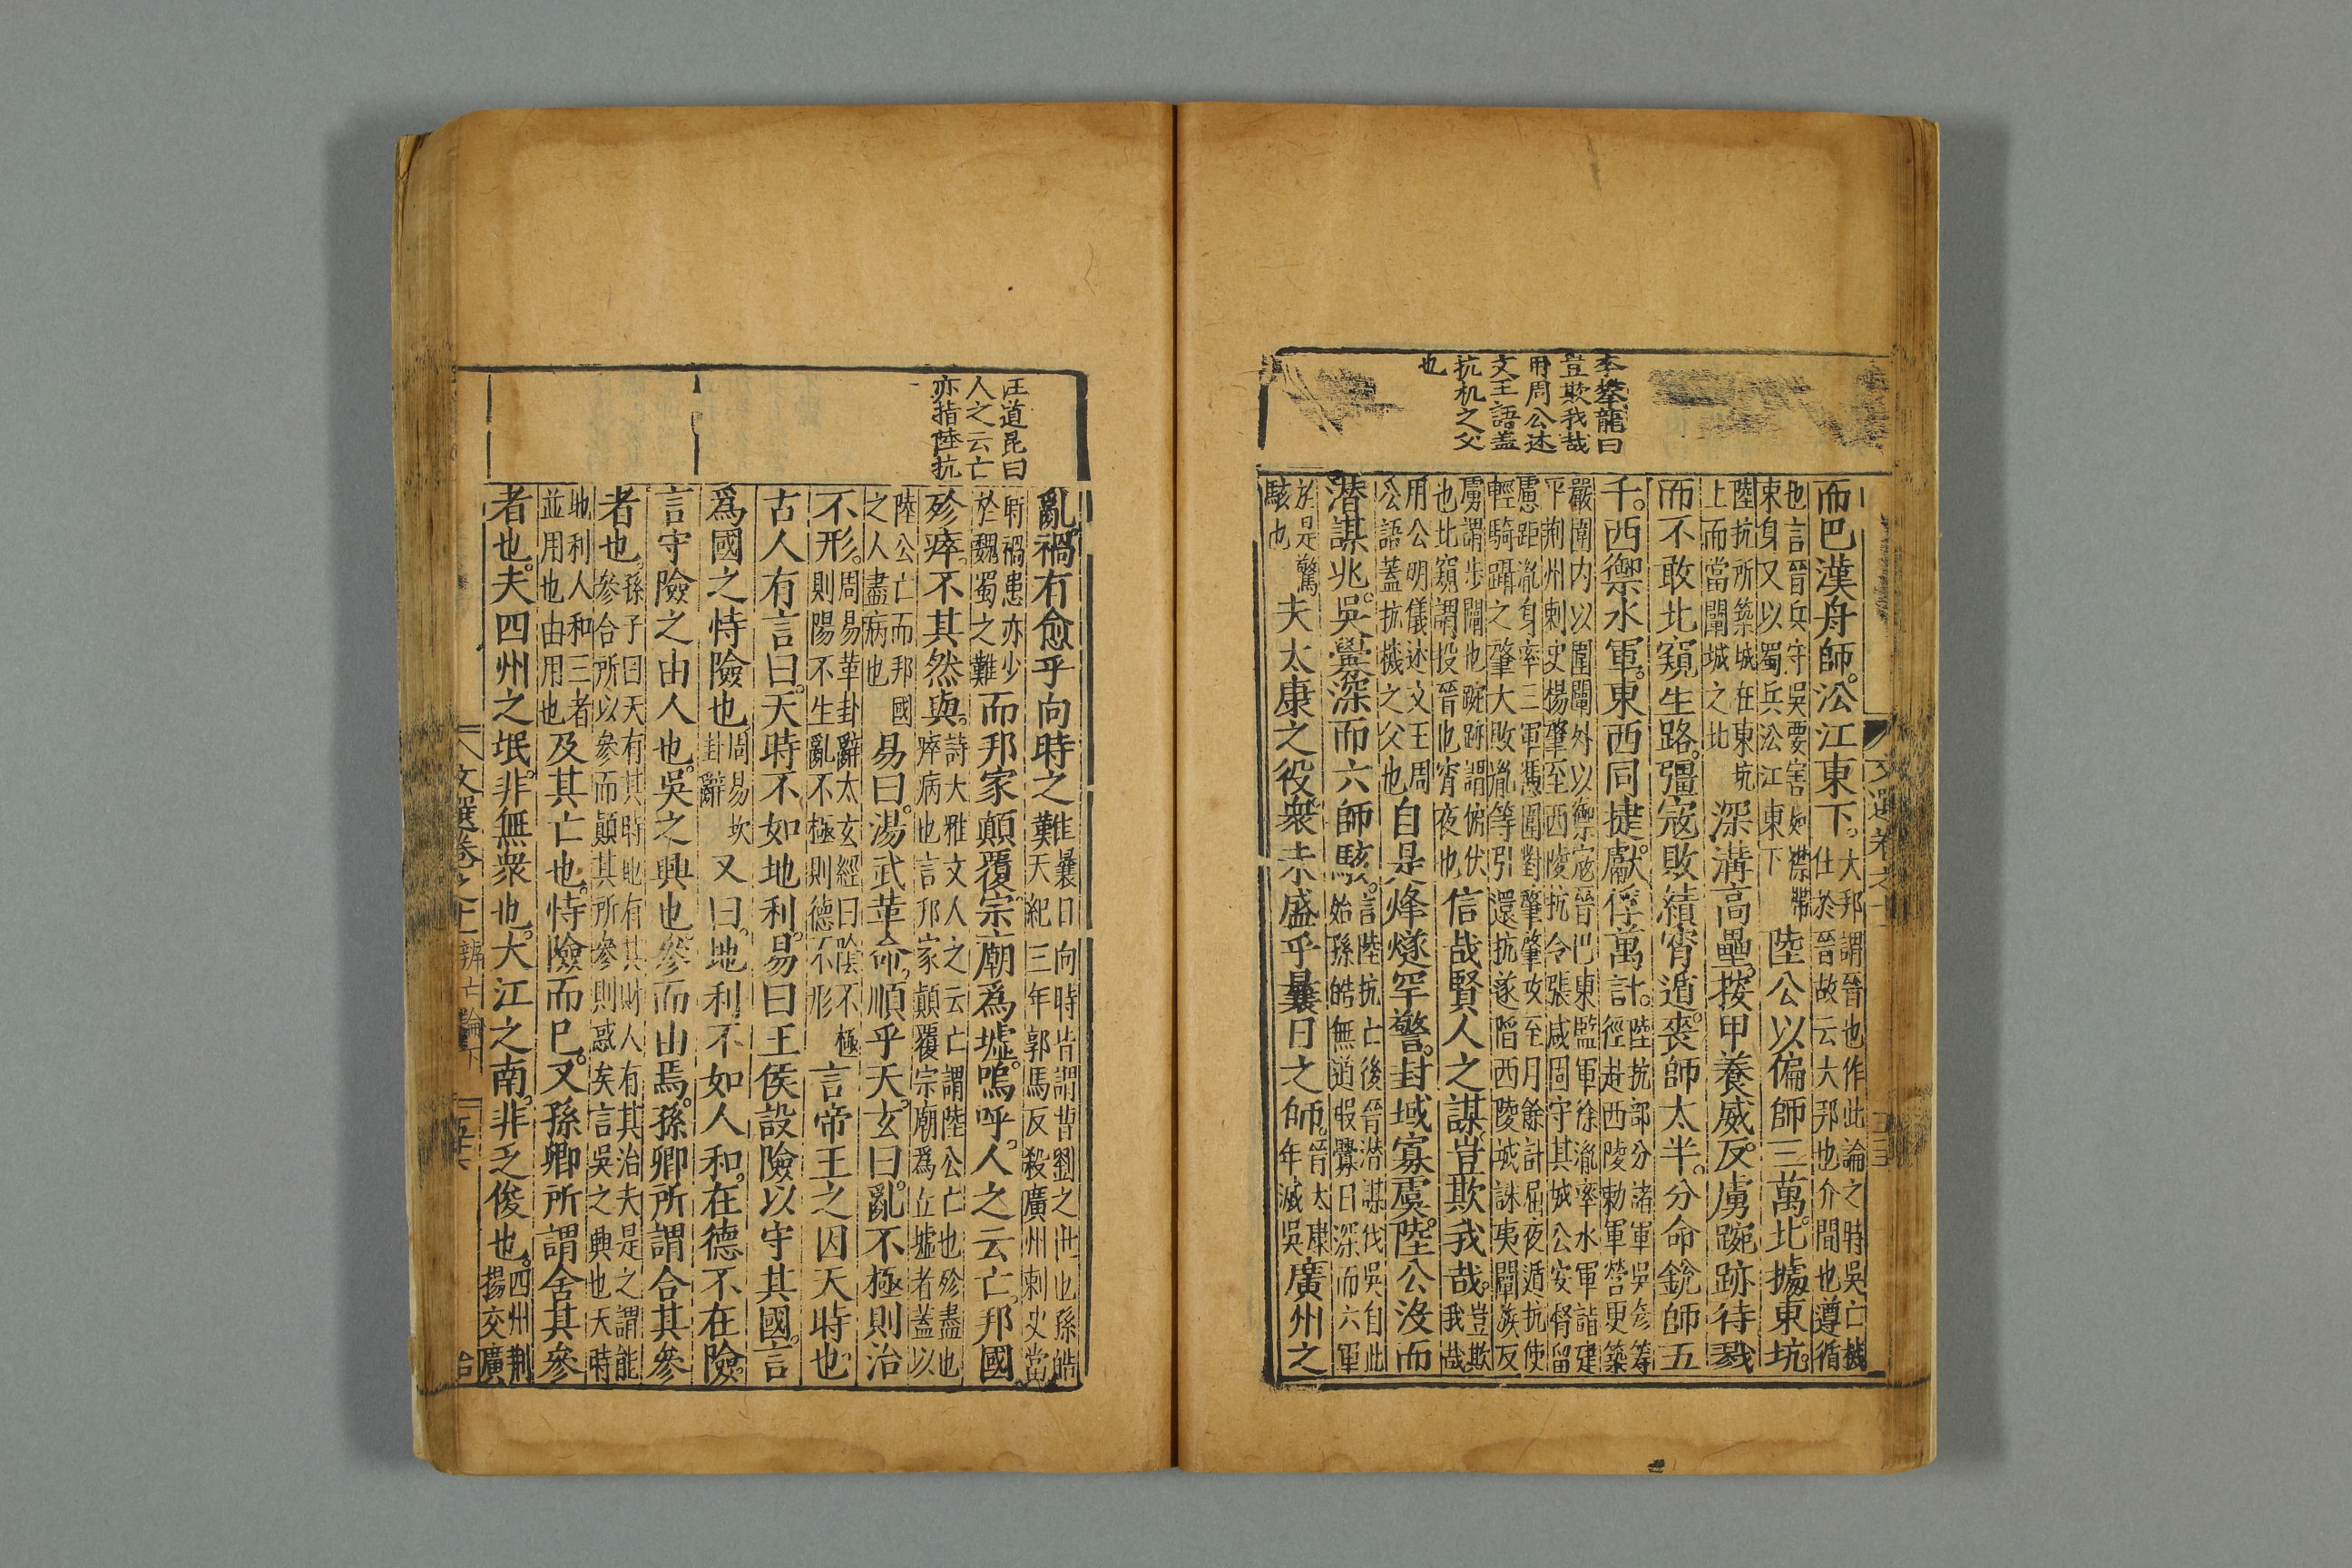 李攀龍曰
豈欺我哉
用周公述
文王語蓋
抗机之父
也
而巴漢舟師。沿江東下。大邦謂晉也作此論之時吳亡機
仕於晉故云大邦也介間也遵循
也言晉兵守吳要害如襟帶
東身又以蜀兵沿江東下陸公以偏師三萬。北據東坑。
陸抗所築城在東坑
上而當闡城之北深溝高壘。按甲養威。反虜踠跡待戮
而不敢北窺生路。彊寇敗績宵遁。喪師太半。分命銳師五
千。西禦水軍。東西同捷。獻俘萬計。陸抗部分諸軍吳彥等
徑赴西陵勅軍營更築
嚴圍內以圍闡外以禦寇晉巴東監軍徐胤率水軍詣建
平荆州刺史楊肇至西陵抗令張咸固守其城公安督留
慮距胤身率三軍憑圍對肇肇攻至月餘計屈夜遁抗使
輕騎躡之肇大敗胤等引還抗遂陷西陵城誅夷闡族反
虜謂步闡也踠跡謂俯伏
也北窺謂投晉也宵夜也信哉賢人之謀。豈欺我哉。豈欺
我哉
用公明儀述文王周
公語蓋抗機之父也自是烽燧罕警。封域寡虞。陸公没而
潜謀兆。吳釁深而六師駭。言陸抗亡後晉潜謀伐吳自此
始孫皓無道暇釁日深而六軍
於是驚
駭也夫太康之役衆未盛乎曩日之師。晉太康
年滅吳廣州之
文選卷之十
汪道昆曰
人之云亡
亦指陸抗
亂。禍有愈乎向時之難曩日向時皆謂昔劉之世也孫皓
天紀三年郭馬反殺廣州刺史當
時禍患亦少
於魏蜀之難而邦家顛覆。宗廟爲墟。嗚呼。人之云亡。邦國
殄瘁。不其然與。詩大雅文人之云亡謂陸公亡也殄盡也
瘁病也言邦家顛覆宗廟爲丘墟者蓋以
陸公亡而邦國
之人盡病也易曰。湯武革命。順乎天。玄曰。亂不極則治
不形。周易革卦辭太玄經曰陰不極
則陽不生亂不極則德不形言帝王之因天時也
古人有言曰。天時不如地利。易曰王侯設險以守其國。言
爲國之恃險也周易坎
卦辭又曰。地利不如人和。在德不在險。
言守險之由人也。吳之興也。參而由焉。孫卿所謂合其參
者也。孫子曰天有其時地有其財人有其治夫是之謂能
參合所以參而顛其所參則惑矣言吳之興也天時
地利人和三者
並用也由用也及其亡也。恃險而已。又孫卿所謂舍其參
者也。夫四州之垊。非無衆也。大江之南。非乏俊也。四州荆
揚交廣
文選卷之十 辨亡論下